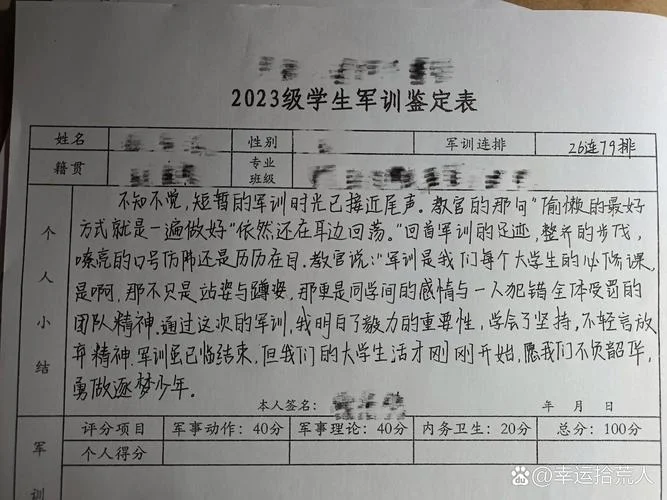 2023级学生军训鉴定表
姓名 性别 军训连排 26连79排
籍贯 专业班级
个人小结
不知不觉,短暂的军训时光已接近尾声。教官的那句“偷懒的最好
方式就是一遍做好”依然还在耳边回荡。”回首军训的足迹,整齐的步伐,
嘹亮的口号仿佛还是历历在目。教官说:“军训是我们每个大学生的必修课,
是啊,那不只是站姿与蹲姿,那更是同学间的感情与一人犯错全体受罚的
团队精神.通过这次的军训,我明白了毅力的重要性,学会了坚持,不轻言放
弃精神.军训虽已临结束,但我们的大学生活才刚刚开始,愿我们不负韶华,
勇做逐梦少年.
本人签名: 年 月 日
军训
评分项目 军事动作:40分 军事理论:40分 内务卫生:20分 总分:100分
个人得分
@幸运拾荒人